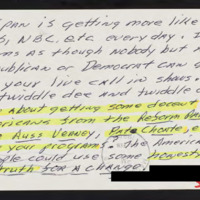 SPAN is getting more like
, NBC, Etc every day. I
ms as though nobody but
ublican or Democrat can g
your live call in shows.
twiddle dee and twiddle d
about getting some decent
ricans from the Reform Pa
Russ Verney, Pat Choate, e
your programs? The America
ople could use some honesty
truth for a change.